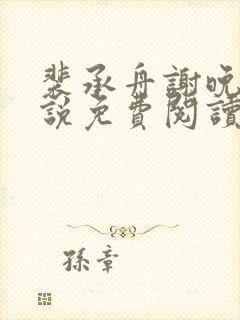 裴承舟謝晚
說免費閱讀
孫章